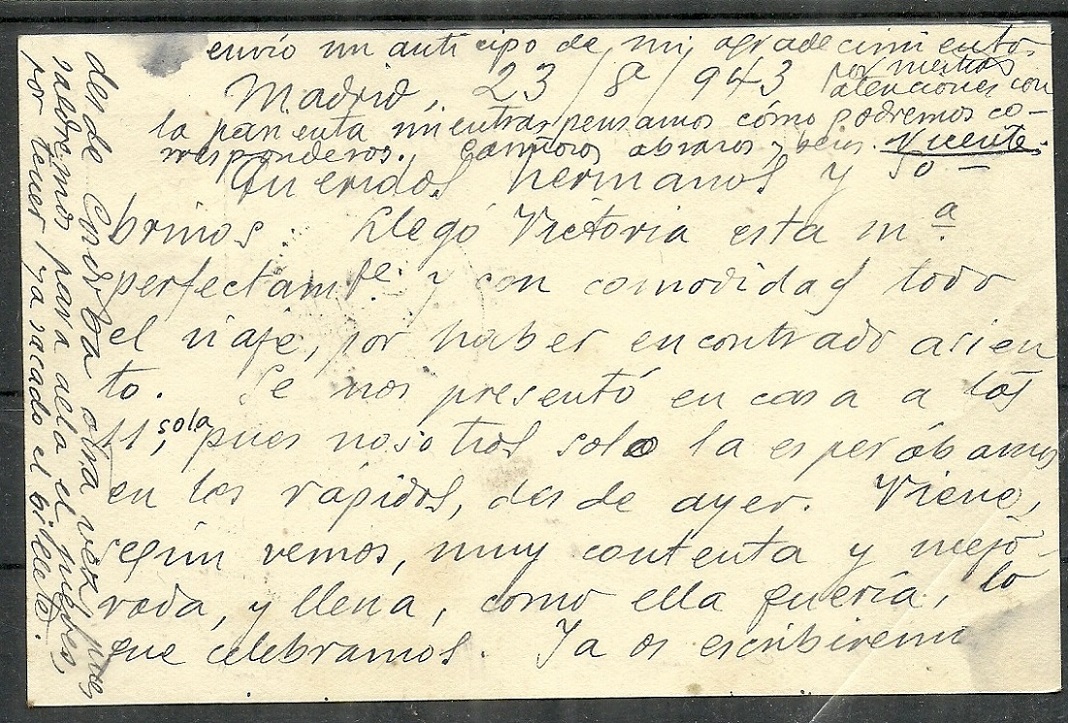 Madrid, 23/8ª/943
Queridos hermanos y so-
brinos: Llegó Victoria esta mª
perfectamte. y con comodidad todo
el viaje, por haber encontrado asien
to. Se nos presentó en casa a las
11, sola, pues nosotros solo la esperábamos
en los rápidos, desde ayer. Viene,
según vemos, muy contenta y mejo-
rada, y llena, como ella quería, lo
que celebramos. Ya os escribiremos
desde Córdoba otra vez, pues
saldremos para allá el jueves,
por tener ya sacado el billete.
envío un anticipo de mi agradecimiento
por vuestras
atenciones con
la parienta mientras pensamos cómo podremos co-
rresponderos. Cariñosos abrazos y besos. Vicente.